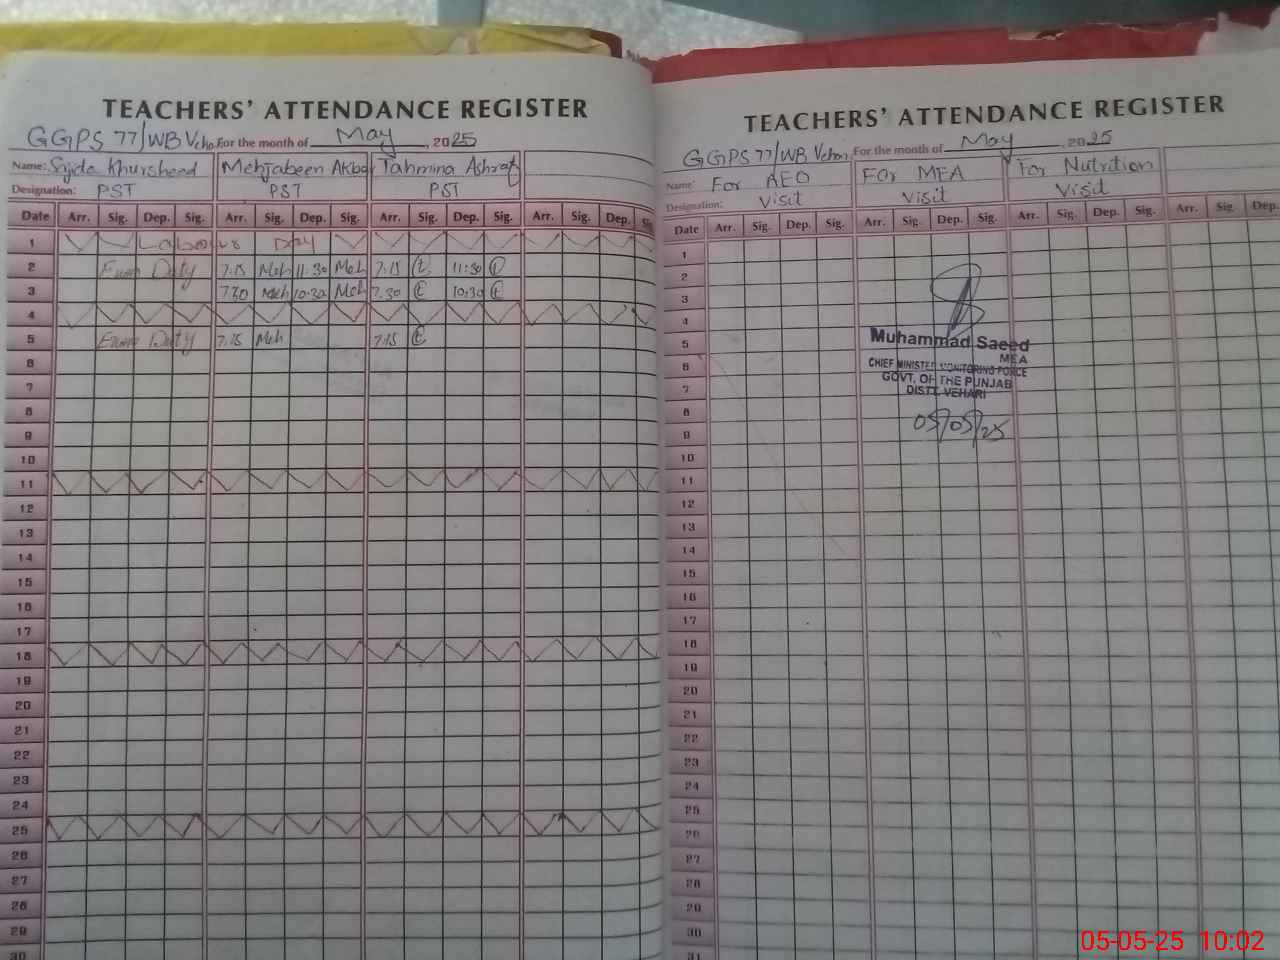 TEACHERS' ATTENDANCE REGISTER
GGPS 77/WB Veh For the month of May, 2025
Name: Sajida Khursheed Mehjabeen Akbar Tahmina Ashraf
Designation: PST PST PST
Date Arr. Sig. Dep. Sig. Arr. Sig. Dep. Sig. Arr. Sig. Dep. Sig. Arr. Sig. Dep. Sig
1 Labour Day
2 Exam Duty 7:15 Meh 11:30 Meh 7:15 t 11:30
3 7.30 Meh 10:30 Meh 7.30 t 10:30 t
4
5 Exam Duty 7:15 Meh 7:15 t
6
7
8
9
10
11
12
13
14
15
16
17
18
19
20
21
22
23
24
25
26
27
28
29
30
TEACHERS' ATTENDANCE REGISTER
GGPS 77/WB Vehari For the month of May, 2025
Name: For AEO For MEA For Nutrition
Designation: Visit Visit Visit
Date Arr. Sig. Dep. Sig. Arr. Sig. Dep. Sig. Arr. Sig. Dep. Sig. Arr. Sig. Dep.
1
2
3
4
5
6
7
8
9
10
11
12
13
14
15
16
17
18
19
20
21
22
23
24
25
26
27
28
29
30
31
Muhammad Saeed
MEA
CHIEF MINISTER MONITORING FORCE
GOVT. OF THE PUNJAB
DISTT. VEHARI
05/05/25
05-05-25 10:02